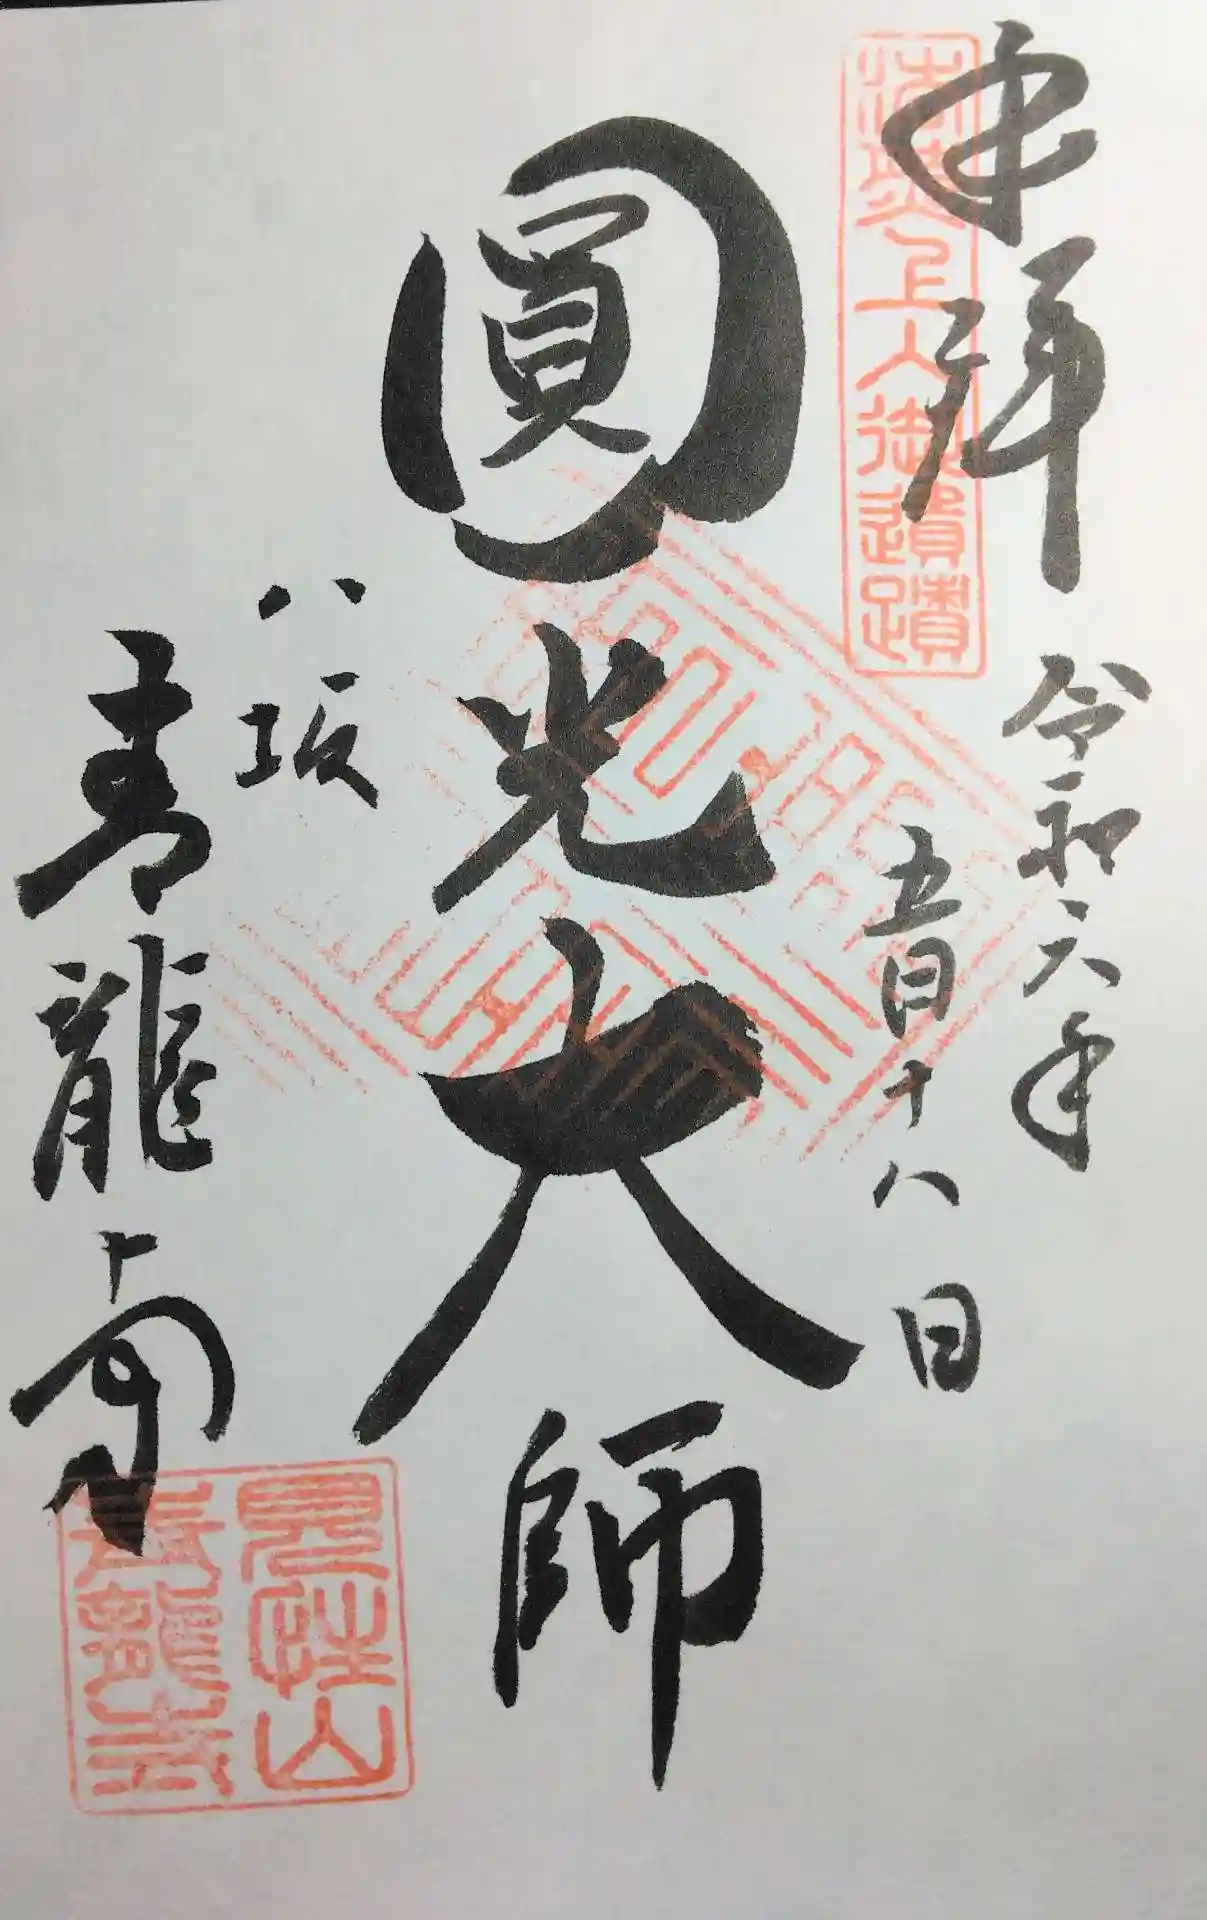 奉拝
法然上人御遺蹟
令和六年
五月十八日
圓光大師
八坂
青龍寺
見性山
青龍寺